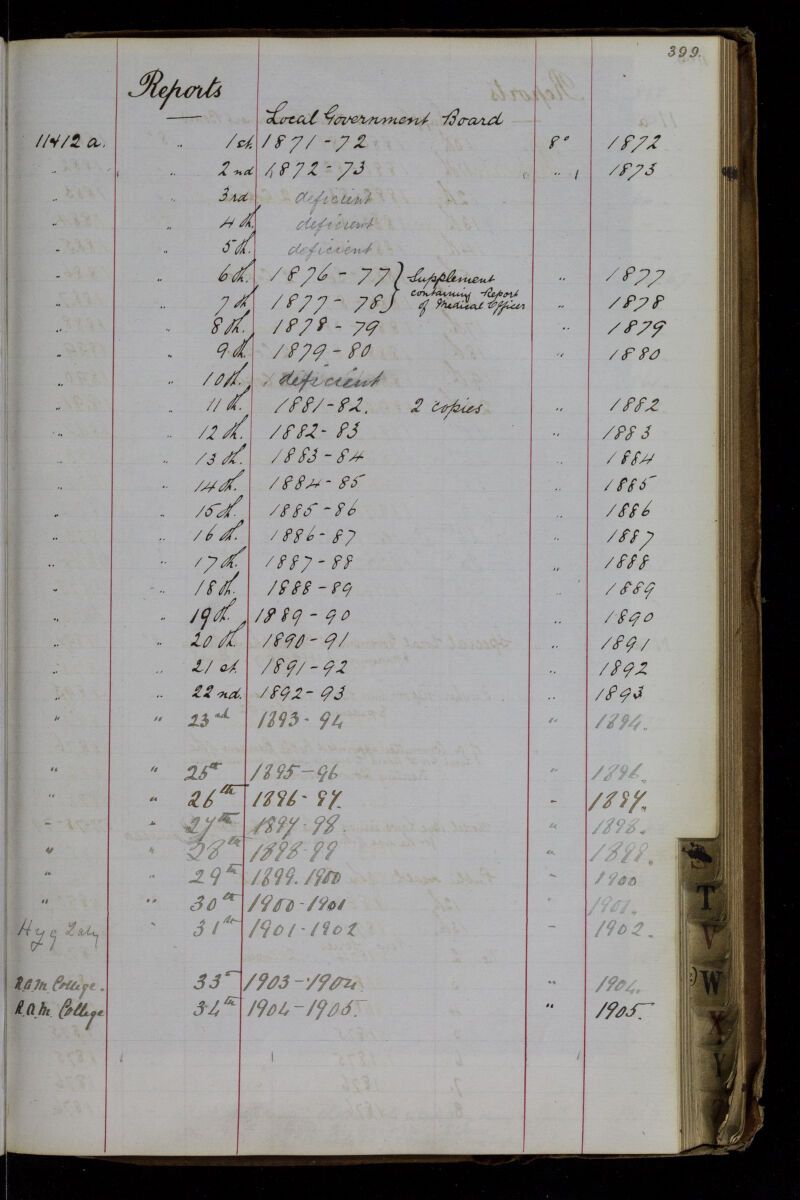 399.
Reports
Local Government Board
11412 a. " 1st 1871-72 8° 1872
" " 2nd 1872-73 " 1873
" " 3rd deficient
" " 4th deficient
" " 5th deficient
" " 6th. 1876-77 } Supplement " 1877
containing Report
" " 7th 1877-78 } of Medical Officer " 1878
" " 8th. 1878-79 " 1879
" " 9th 1879-80 " 1880
" " 10th. deficient
" " 11th. 1881-82. 2 copies " 1882
" " 12th. 1882-83 " 1883
" " 13th. 1883-84 " 1884
" " 14th. 1884-85 " 1885
" " 15th. 1885-86 " 1886
" " 16th. 1886-87 " 1887
" " 17th. 1887-88 " 1888
" " 18th. 1888-89 " 1889
" " 19th. 1889-90 " 1890
" " 20th. 1890-91 " 1891
" " 21st. 1891-92 " 1892
" " 22nd. 1892-93 " 1893
" " 23rd 1893-94 " 1894.
" " 25th 1895-96 " 1896.
" " 26th 1896-97. " 1897.
" " 27th 1897-98 " 1898.
" " 28th 1898-99 " 1899.
" " 29th 1899.1900 " 1900
" " 30th 1900-1901 " 1901.
Hyg Laby " 31st 1901-1902 " 1902.
R.A.M. College. 33d 1903-1904 " 1904.
R.A.M. College 34th 1904-1905. " 1905.
T
V
W
X
Y